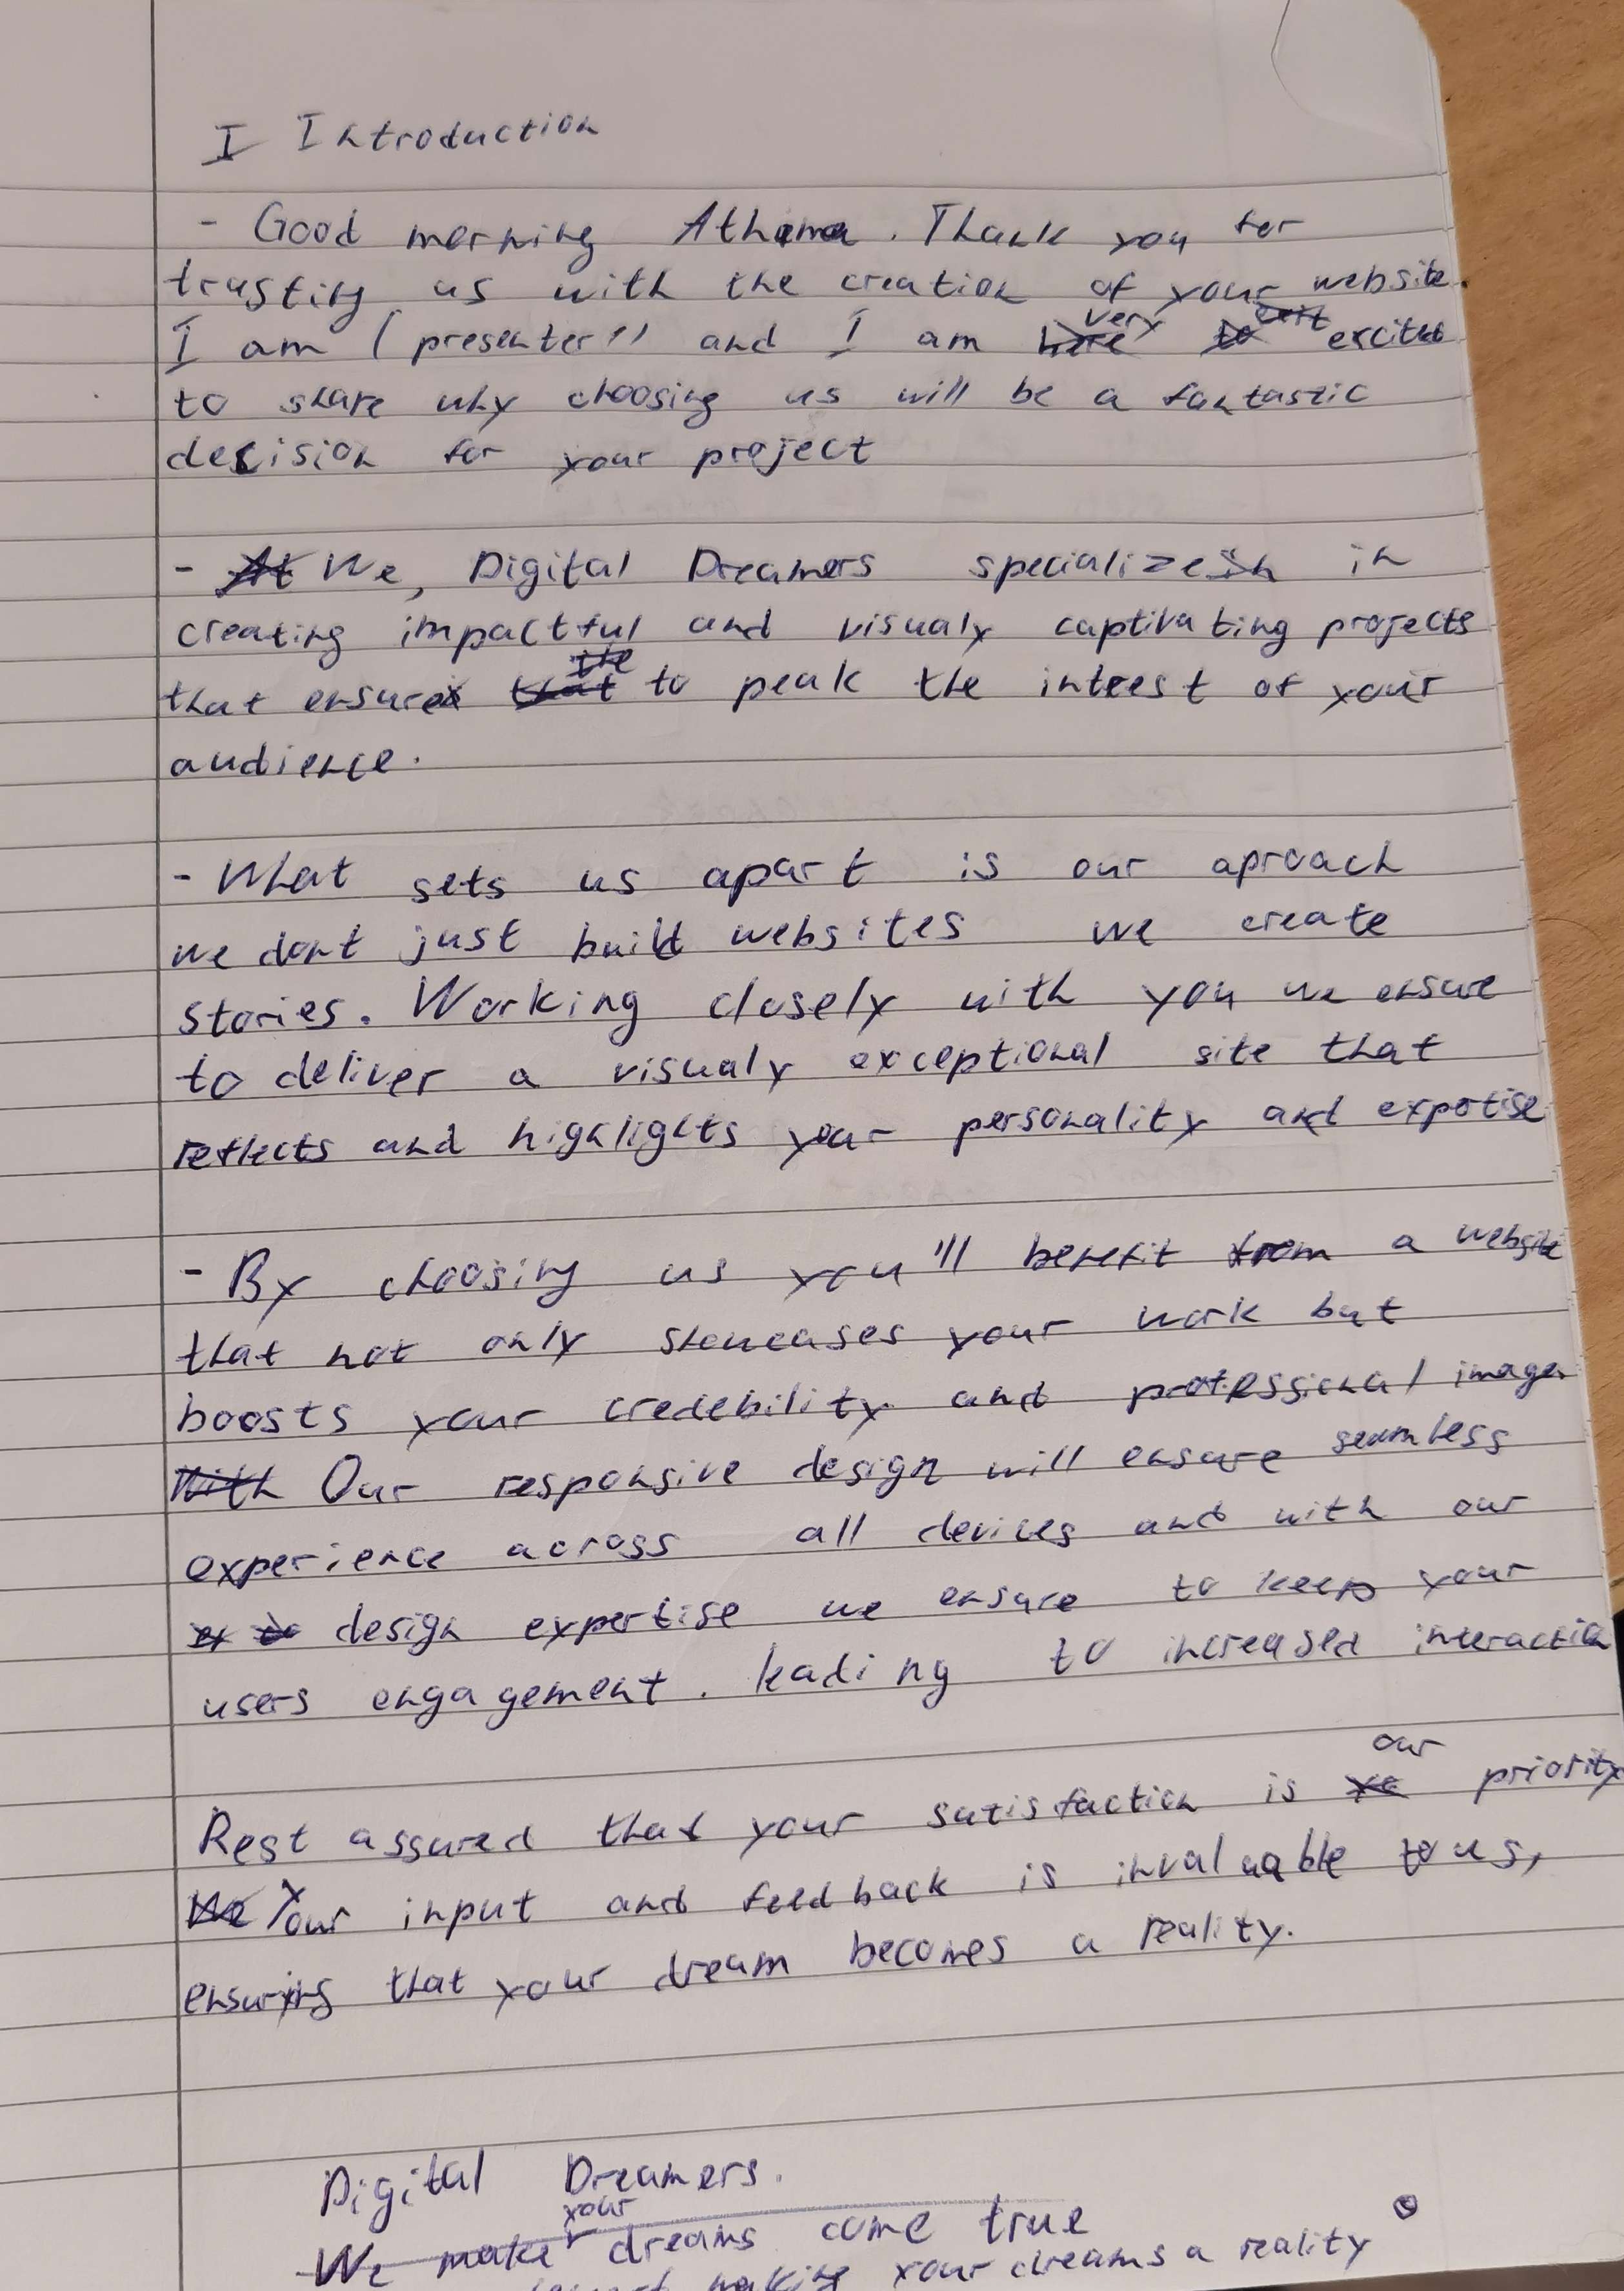 I Introduction
- Good morning Athena. Thank you for
trusting us with the creation of your website.
I am (presenter)) and I am very excited
to share why choosing us will be a fantastic
decision for your project
- We, Digital Dreamers specialize in
creating impactful and visualy captivating projects
that ensure to peak the intrest of your
audience.
- What sets us apart is our aproach
we dont just build websites we create
stories. Working closely with you we ensure
to deliver a visualy exceptional site that
reflects and highlights your personality and expertise
- By choosing us you'll benefit from a website
that not only showcases your work but
boosts your credebility and professional image
Our responsive design will ensure seamless
experience across all devices and with our
design expertise we ensure to keep your
users engagement. leading to increased interaction
our
Rest assured that your satisfaction is priority
Your input and feedback is invaluable to us,
ensuring that your dream becomes a reality.
Digital Dreamers.
your
We make dreams come true
making your dreams a reality